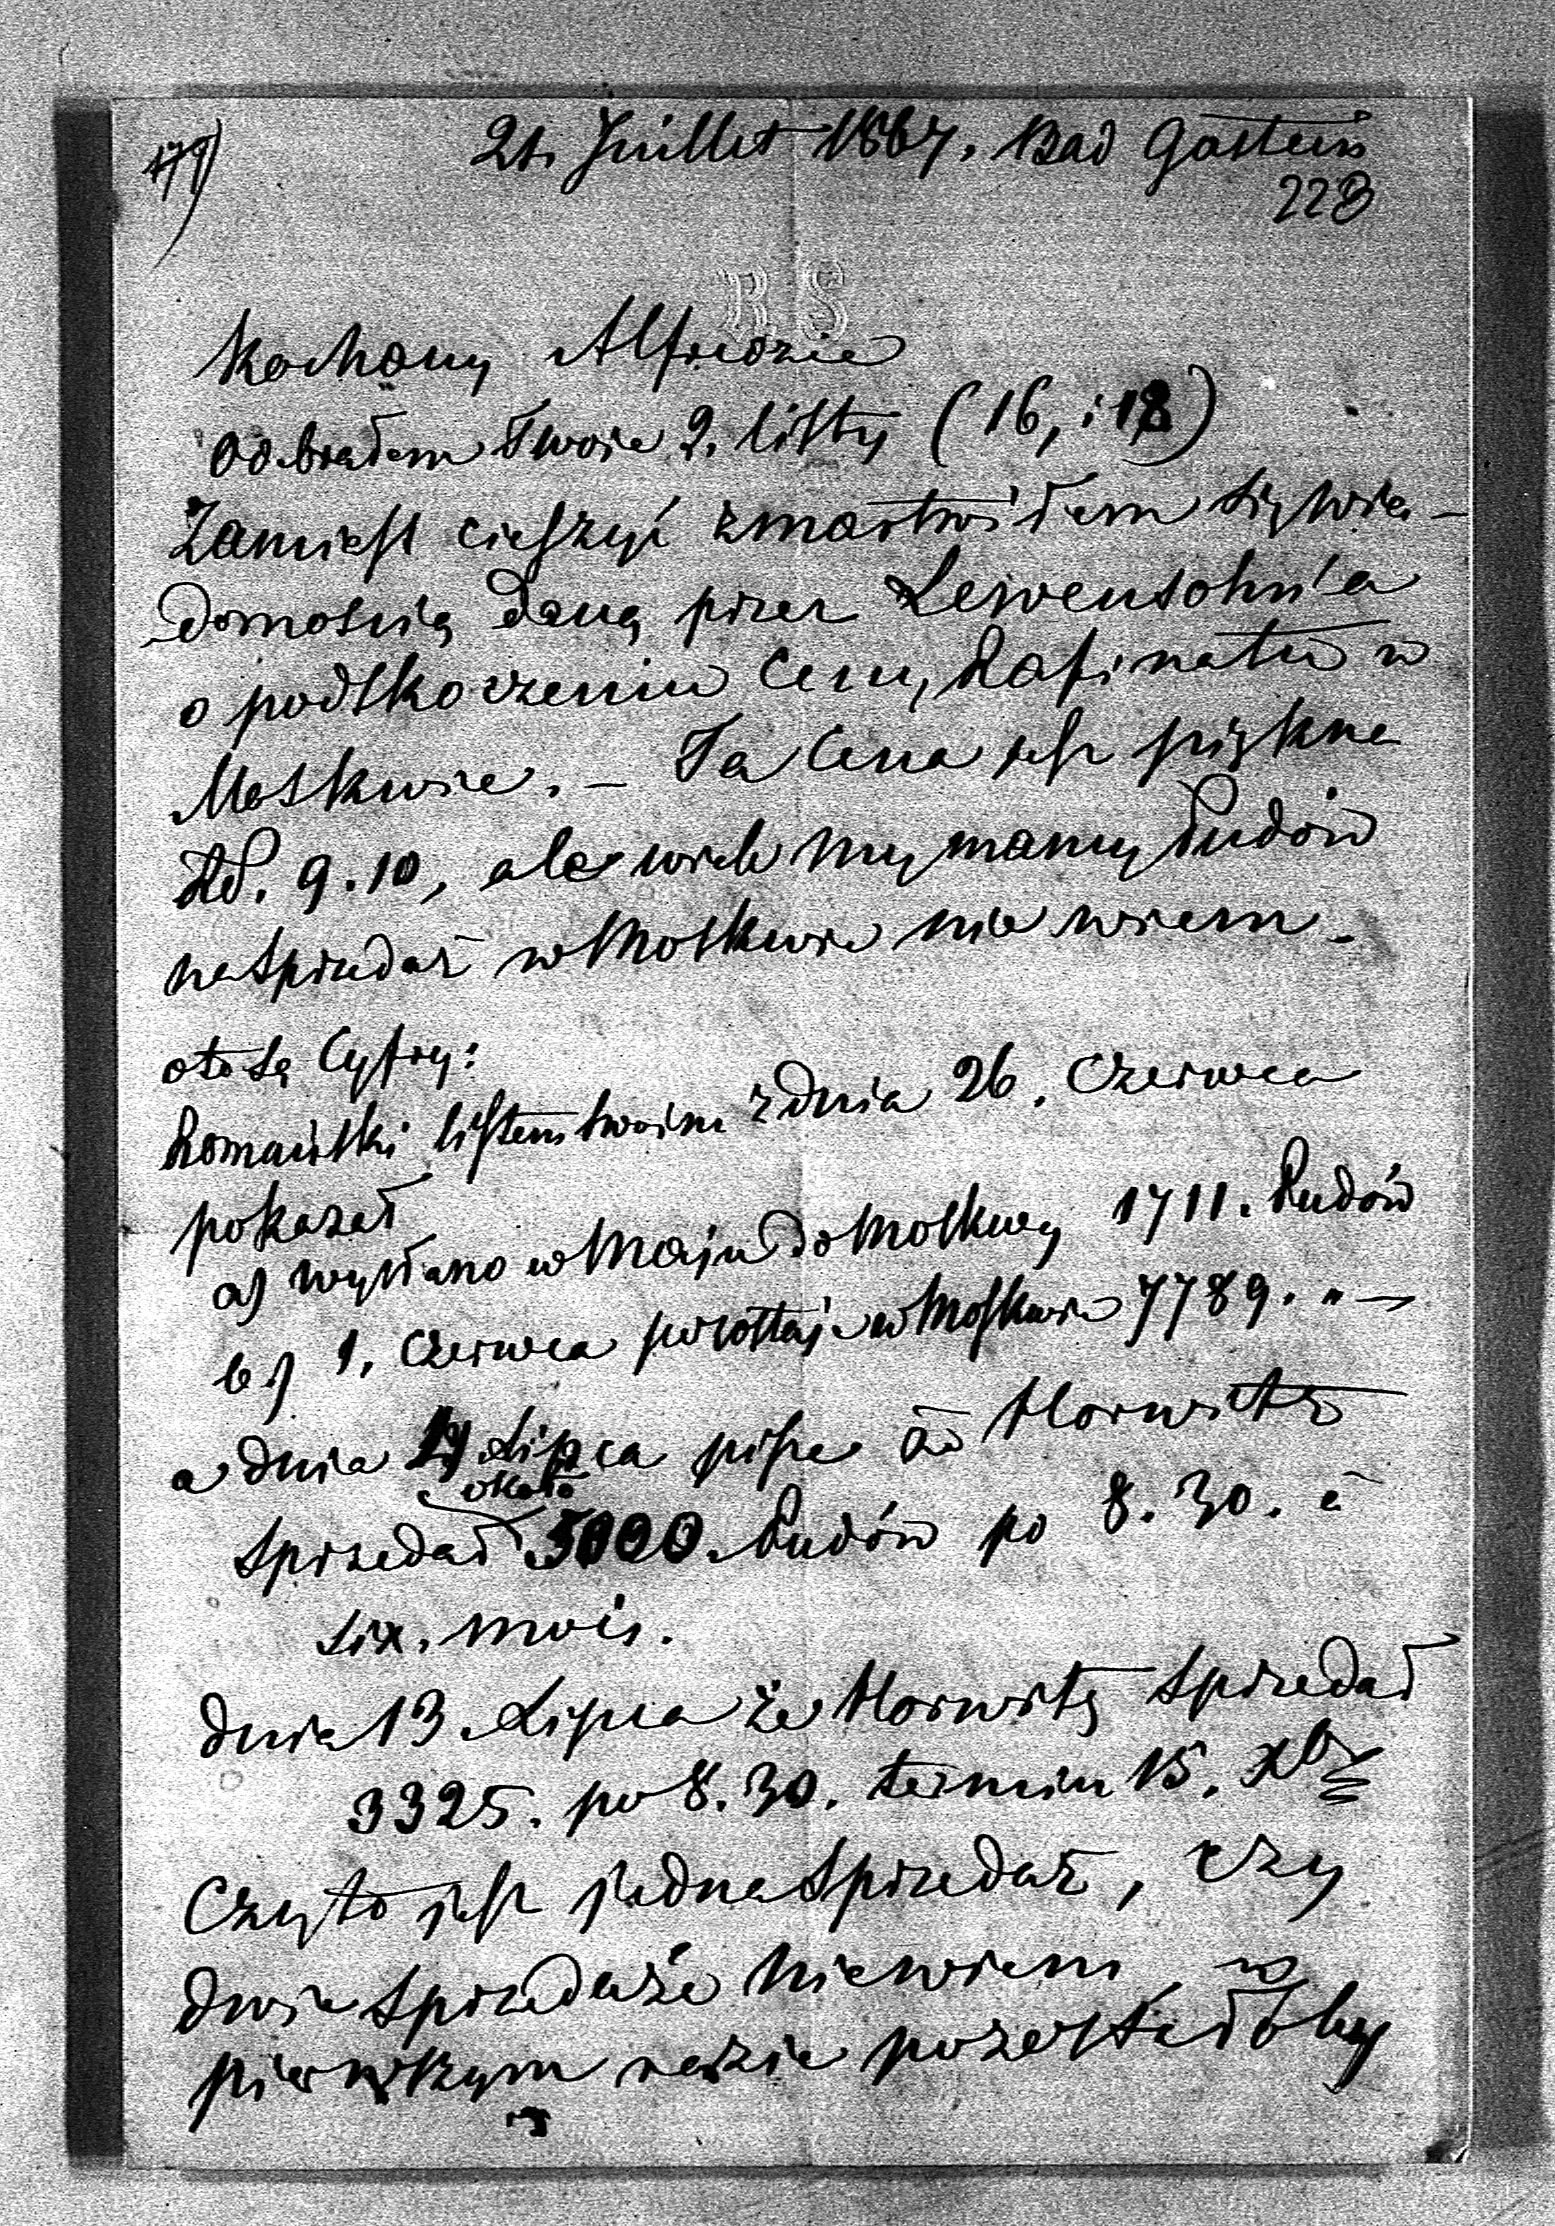 179)
21. Juillet 1867. Bad Gastein
228
R S
Kochany Alfredzie
Odebrałem Twoie 2. listy (16, i 18)
Zamiast cieszyć zmartwiłem się wia-
domością daną przez Lewensohn'a
o podskoczeniu Ceny Rafinatu w
Moskwie. – Ta Cena jest piękna
Rb. 9.10, ale wiele my mamy Pudów
na sprzedaż w Moskwie nie wiem.
oto są Cyfry:
Romański listem twoim z dnia 26. Czerwca
pokazał
a) wysłano w Maju do Moskwy 1711. Pudów
b) 1. Czerwca pozostaje w Moskwie 7789. " —
a dnia Lipca pisze że Horwitz
około
sprzedał 5000. Pudów po 8.30. à
six. mois.
dnia 13. Lipca że Horwitz sprzedał
3325. po 8.30. termin 15. Xbr
Czy to jest jedna sprzedaż, czy
dwie sprzedaże niewiem, w
pierwszym razie pozostałoby